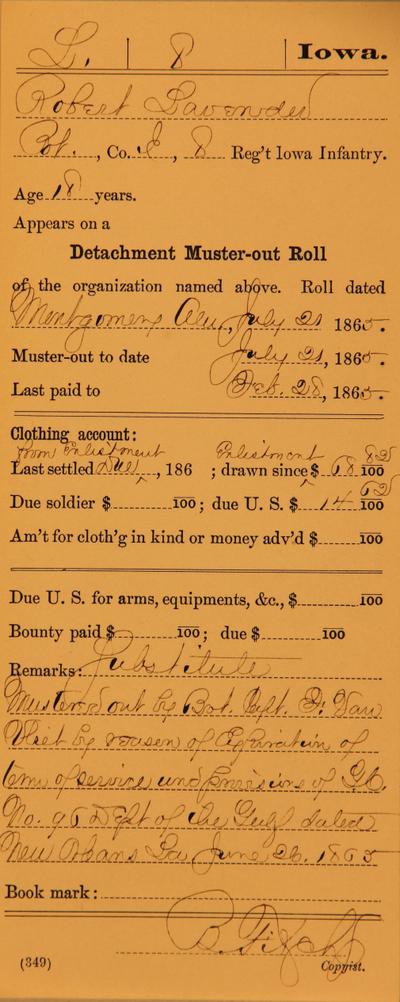 L. | 8 | Iowa.
Robert Lavender
Pvt., Co. I, 8 Reg't Iowa Infantry.
Age 18 years.
Appears on a
Detachment Muster-out Roll
of the organization named above. Roll dated
Montgomery Ala., July 21 1865.
Muster-out to date July 21, 1865.
Last paid to Feb. 28, 1865.
Clothing account:
from Enlistment Enlistment
Last settled, 186 ; drawn since $ 68 82/100
Due soldier $ /100; due U. S. $ 14 62/100
Am't for cloth'g in kind or money adv'd $ /100
Due U. S. for arms, equipments, &c., $ /100
Bounty paid $ /100; due $ /100
Remarks: Substitute
Mustered out by Bvt. Capt. F. Van
Vliet by reason of Expiration of
term of service and provisions of G.O.
No. Dept of the Gulf dated
New Orleans La, June 26. 1865
Book mark:
(349) Copyist.